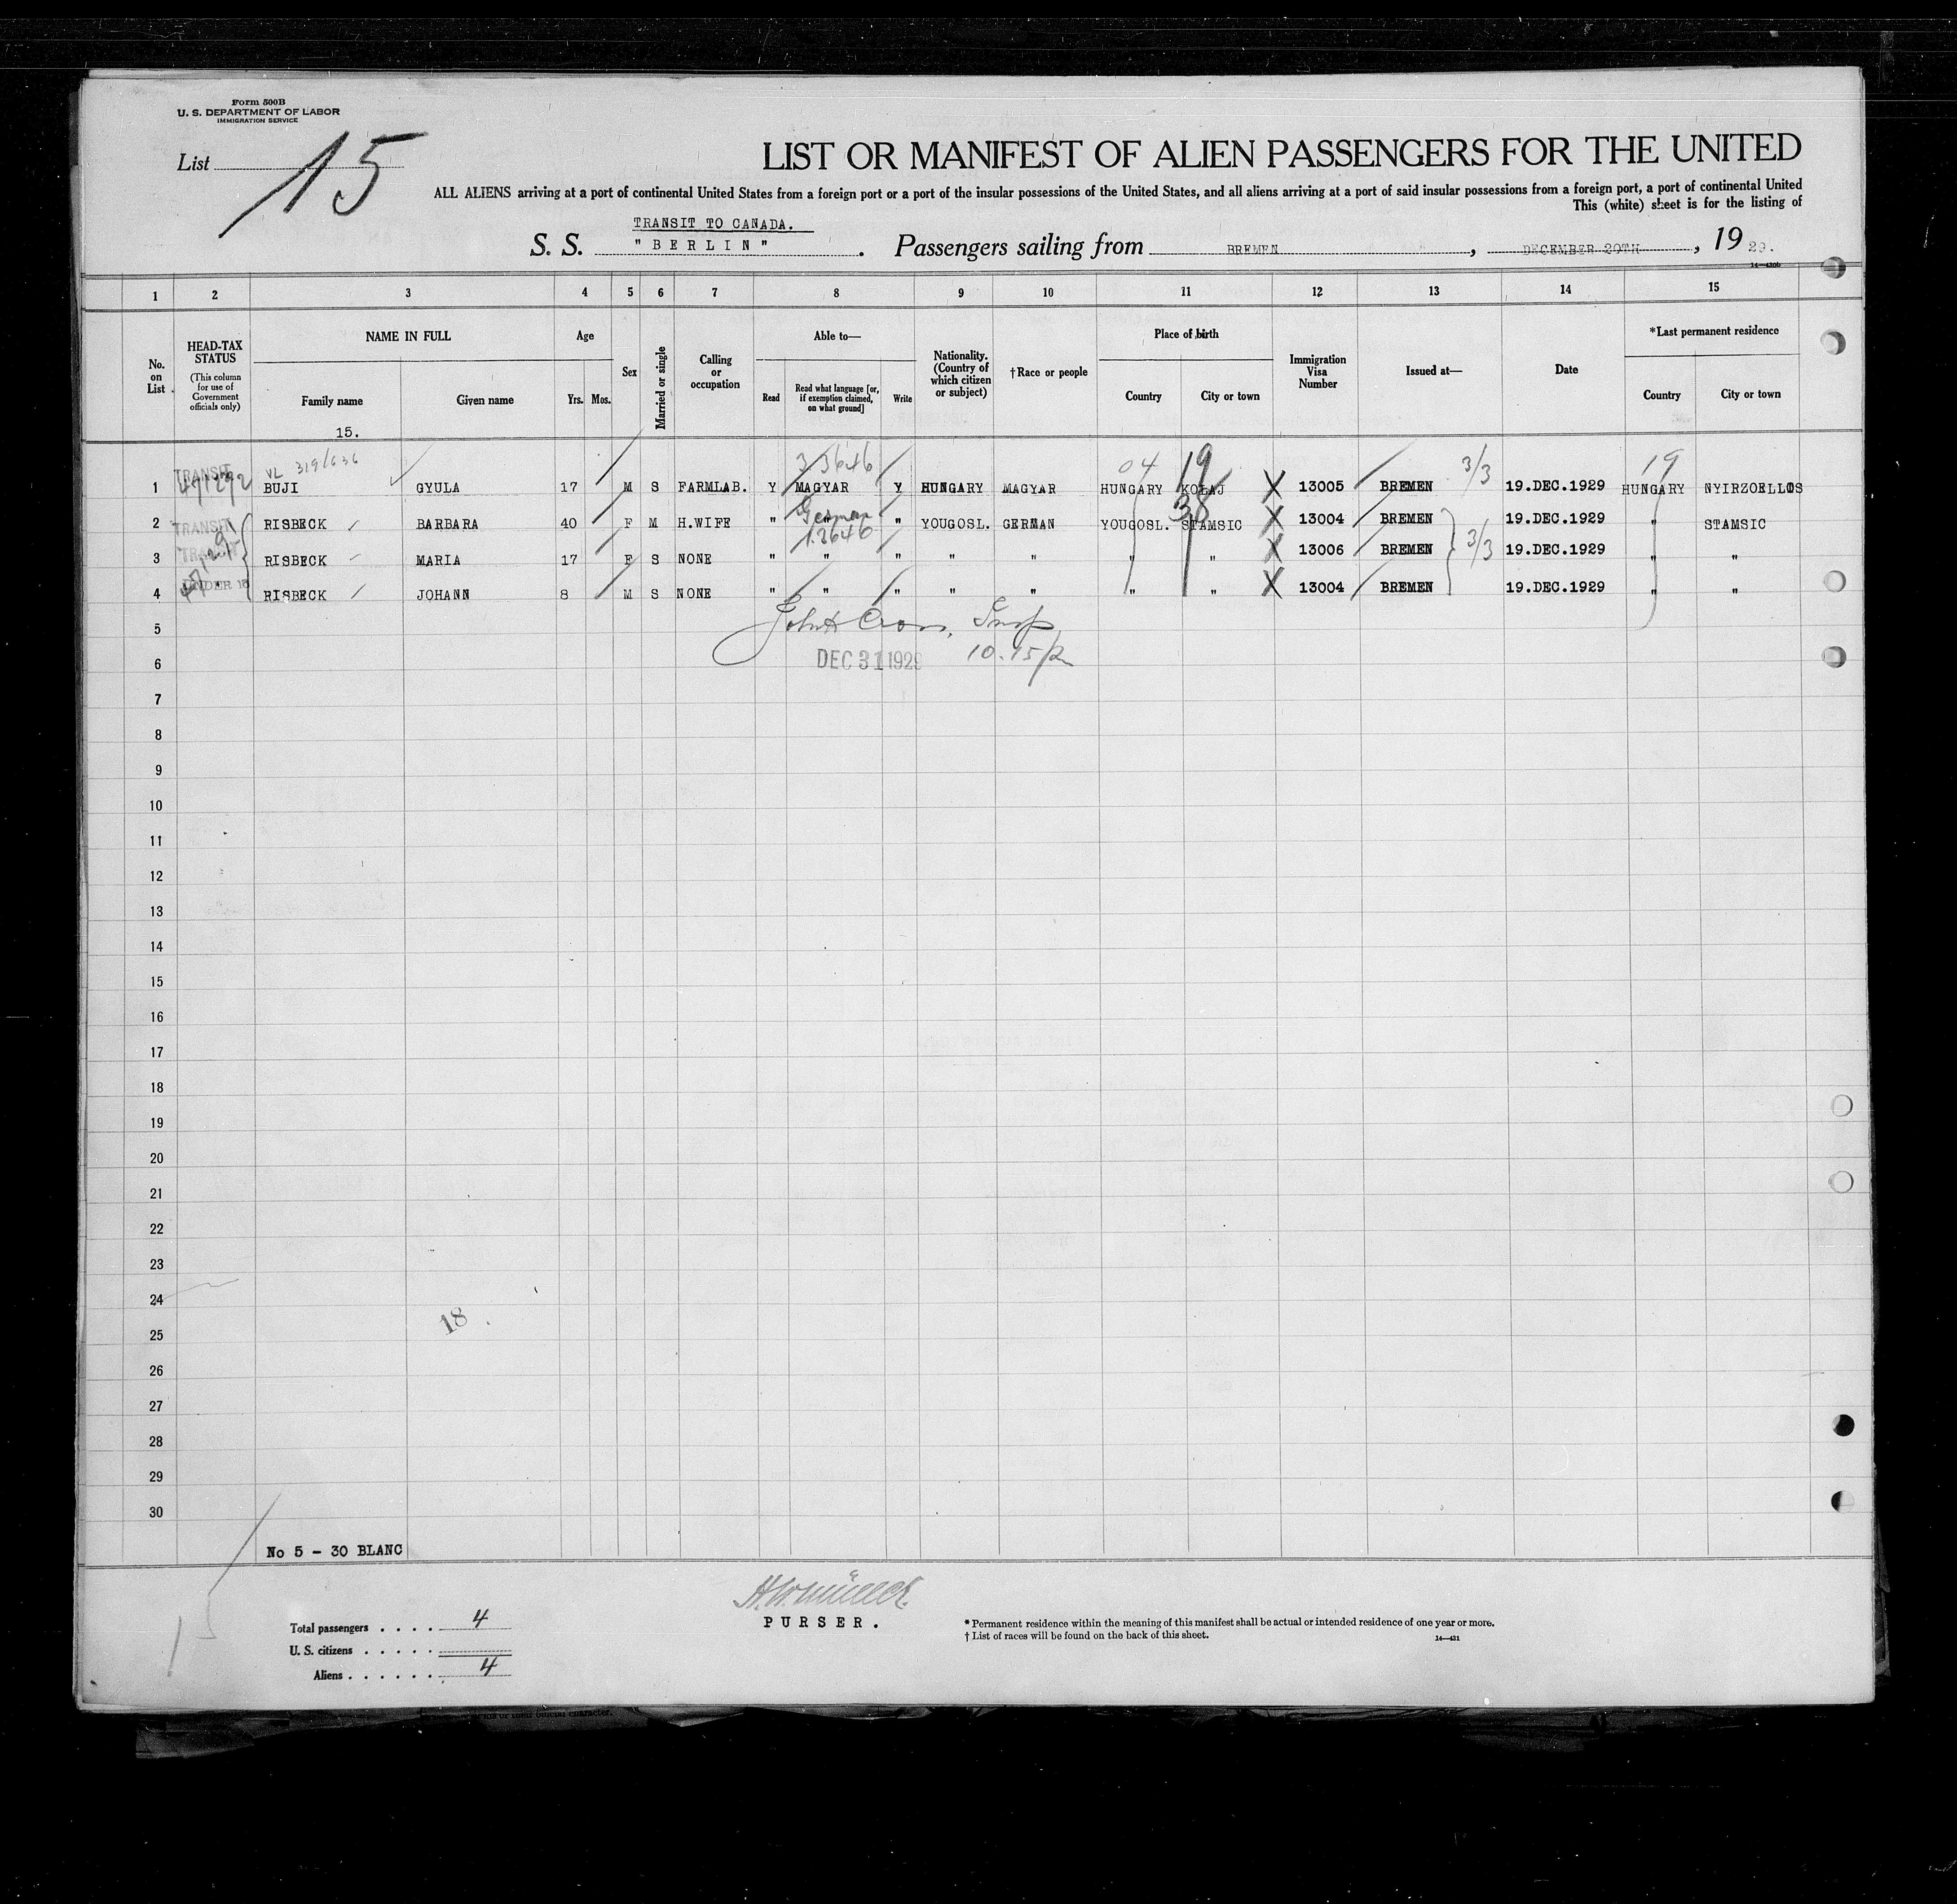 Form 500B
U. S. DEPARTMENT OF LABOR
IMMIGRATION SERVICE
List 15
LIST OR MANIFEST OF ALIEN PASSENGERS FOR THE UNITED
ALL ALIENS arriving at a port of continental United States from a foreign port or a port of the insular possessions of the United States, and all aliens arriving at a port of said insular possessions from a foreign port, a port of continental United
This (white) sheet is for the listing of
TRANSIT TO CANADA.
S. S. "BERLIN". Passengers sailing from BREMEN, DECEMBER 20TH, 19 29.
14—430b
1 2 3 4 5 6 7 8 9 10 11 12 13 14 15
No. on List
HEAD-TAX STATUS (This column for use of Government officials only)
NAME IN FULL Family name Given name
Age Yrs. Mos.
Sex
Married or single
Calling or occupation
Able to— Read Read what language [or, if exemption claimed, on what ground] Write
Nationality. (Country of which citizen or subject)
†Race or people
Place of birth Country City or town
Immigration Visa Number
Issued at—
Date
*Last permanent residence Country City or town
15.
VL 319/636 33646 04 19 3/3 19
1 TRANSIT BUJI GYULA 17 M S FARMLAB. Y MAGYAR Y HUNGARY MAGYAR HUNGARY KOLAJ 13005 BREMEN 19.DEC.1929 HUNGARY NYIRZOELLOS
German 38
2 TRANSIT RISBECK BARBARA 40 F M H.WIFE " " " YOUGOSL. GERMAN YOUGOSL. STAMSIC 13004 BREMEN 19.DEC.1929 " STAMSIC
13646 3/3
3 TRANSIT RISBECK MARIA 17 F S NONE " " " " " " " 13006 BREMEN 19.DEC.1929 " "
4 UNDER 16 RISBECK JOHANN 8 M S NONE " " " " " " " 13004 BREMEN 19.DEC.1929 " "
5 John Cross, Insp
6 DEC 31 1929
7
8
9
10
11
12
13
14
15
16
17
18
19
20
21
22
23
24
18
25
26
27
28
29
30
No 5 - 30 BLANC
15
H.W. Müller
PURSER.
Total passengers . . . . 4
U. S. citizens . . . . .
Aliens . . . . . . 4
* Permanent residence within the meaning of this manifest shall be actual or intended residence of one year or more.
† List of races will be found on the back of this sheet.
14—431